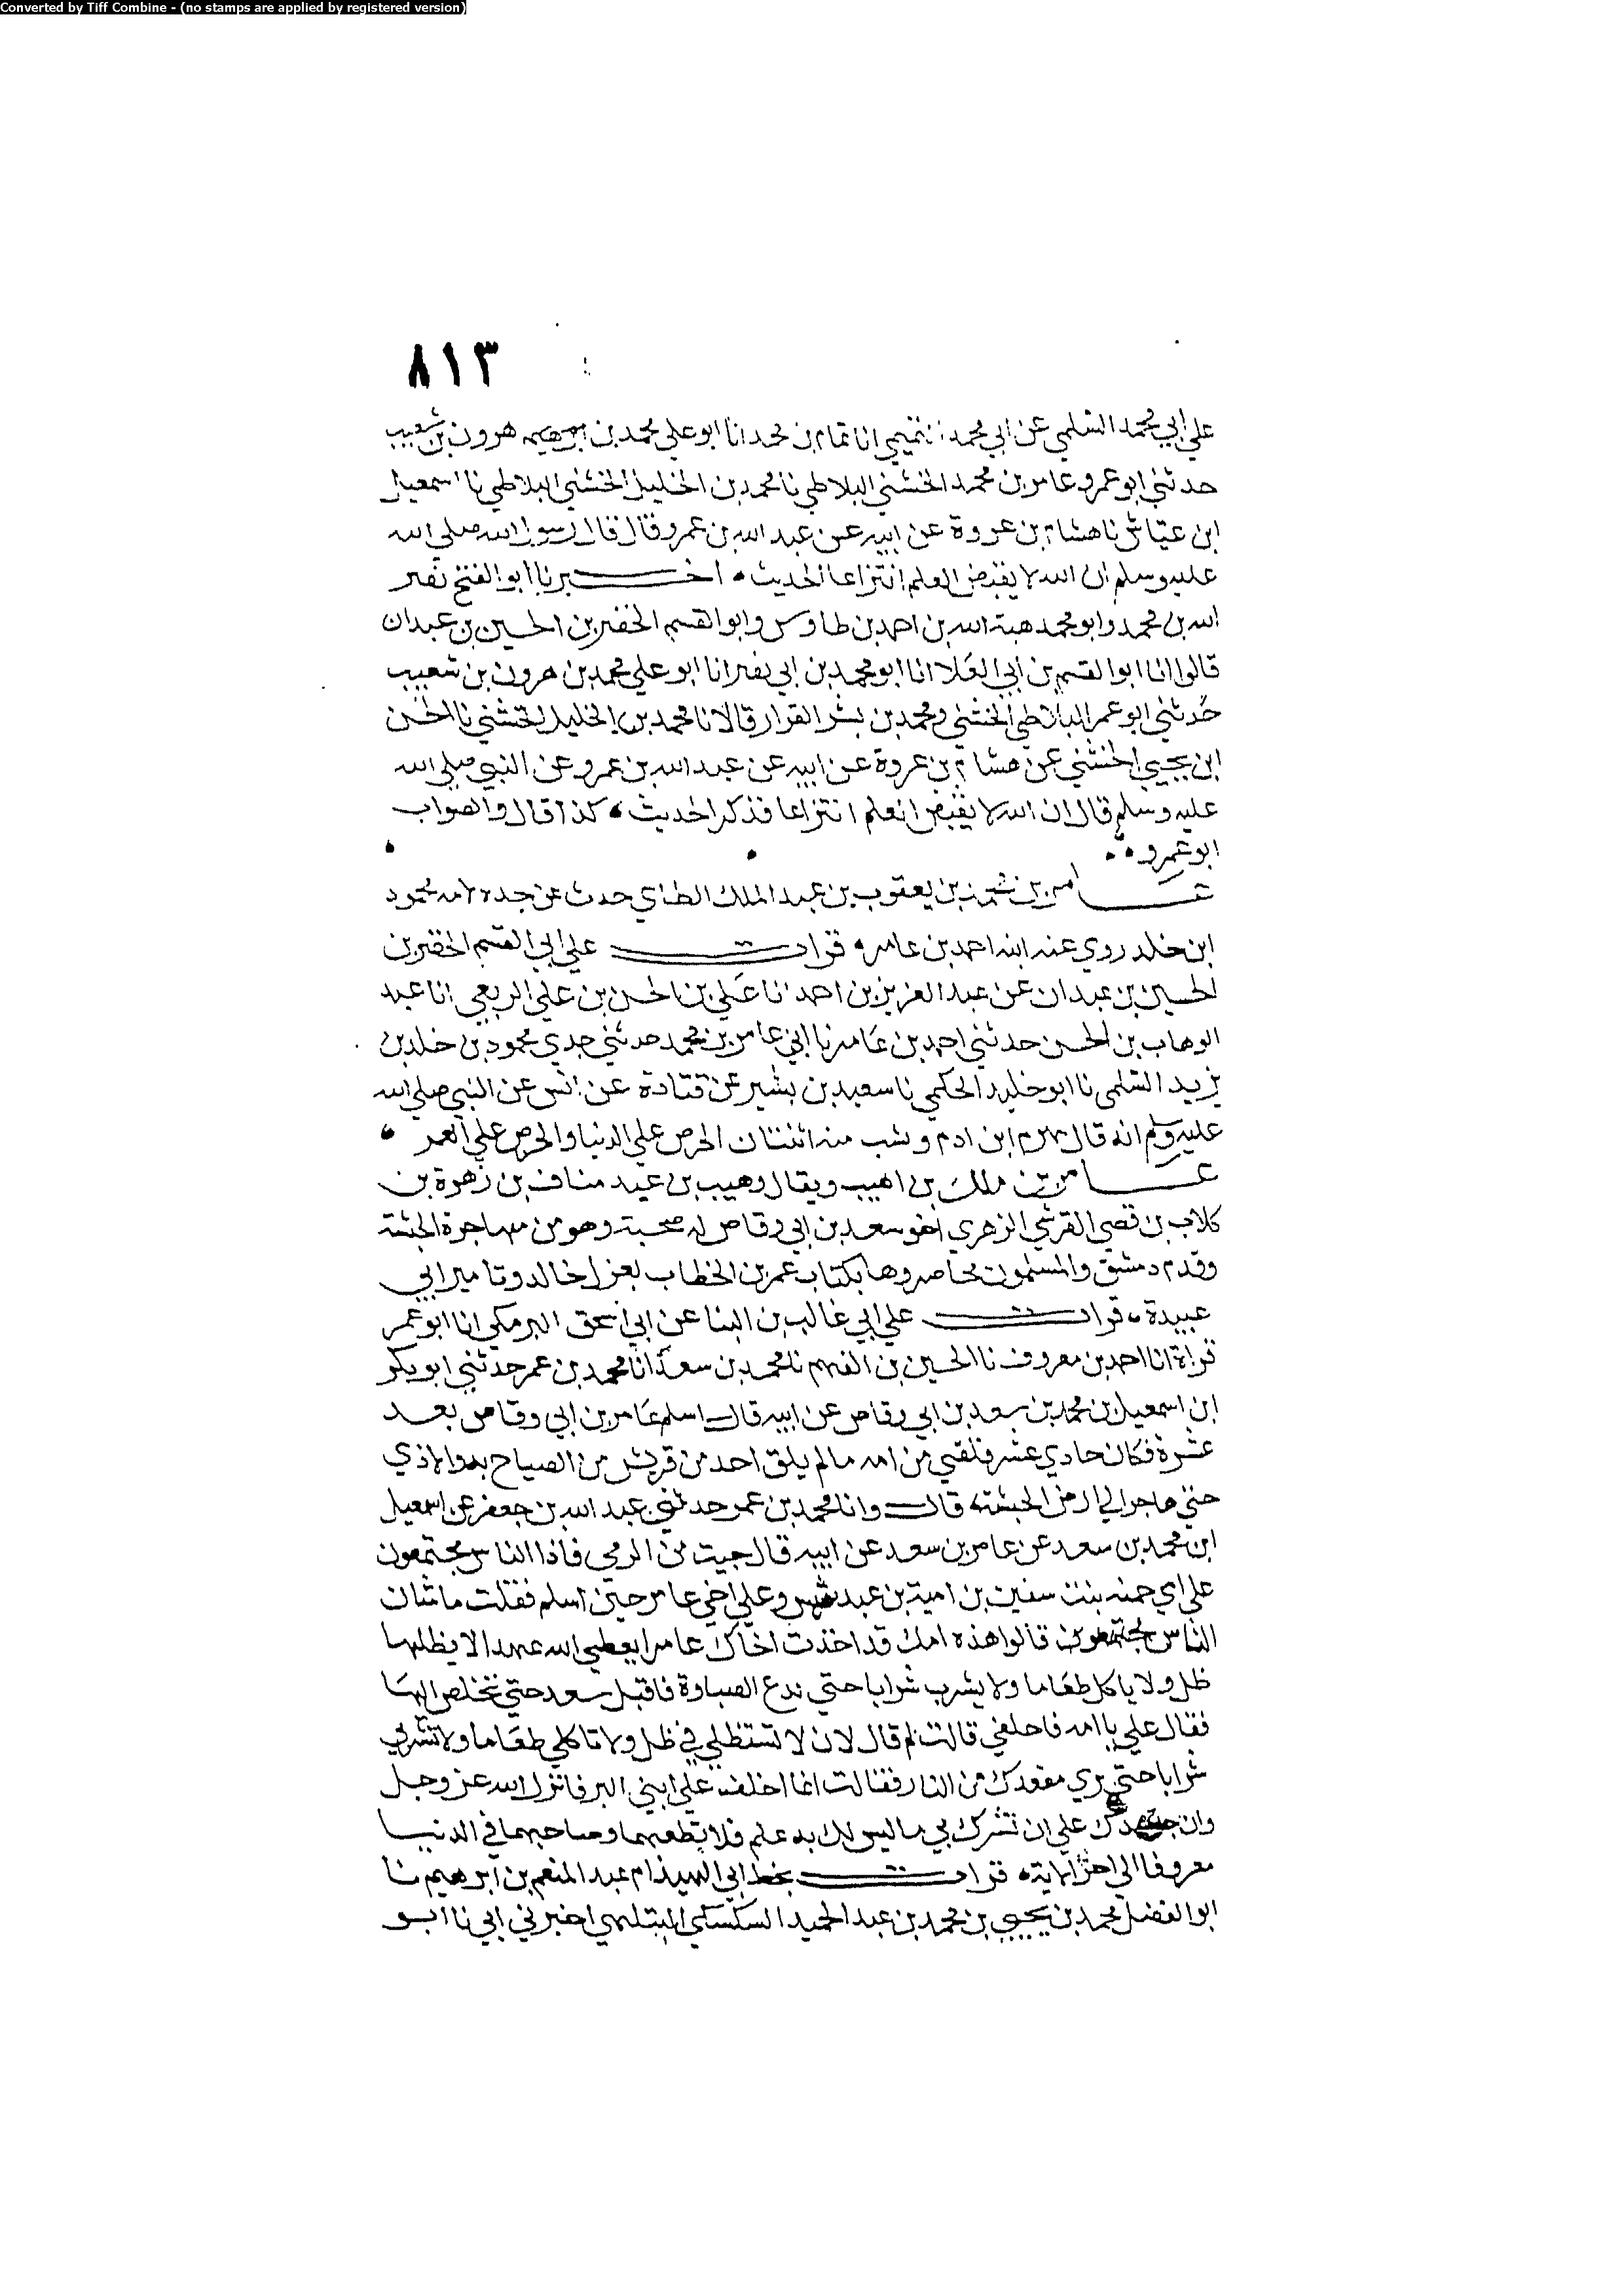 Converted by Tiff Combine - (no stamps are applied by registered version)
٨١٣
علي ابي محمد السلمي عن ابي محمد التميمي انا تمام بن محمد انا ابو علي محمد بن هرون بن شعيب
حدثني ابو عمرو عامر بن محمد الخشني البلاطي نا محمد بن الخليل الخشني البلاطي نا اسمعيل
ابن عياش نا هشام بن عروة عن ابيه عن عبد الله بن عمرو قال قال رسول الله صلي الله
عليه وسلم ان الله لا يقبض العلم انتزاعا الحديث • اخبرنا ابو الفتح نصر
الله بن محمد وابو محمد هبة الله بن احمد بن طاوس وابو القسم الخضر بن الحسين بن عبدان
قالوا انا ابو القسم بن ابي العلا انا ابو محمد بن ابي نصر انا ابو علي محمد بن هرون بن شعيب
حدثني ابو عمر البلاطي الخشني ومحمد بن بشر القزاز قالا نا محمد بن الخليل الخشني نا الحسن
ابن يحيي الخشني عن هشام بن عروة عن ابيه عن عبد الله بن عمرو عن النبي صلي الله
عليه وسلم قال ان الله لا يقبض العلم انتزاعا فذكر الحديث • كذا قال والصواب
ابو عمرو ••
عامر بن محمد بن يعقوب بن عبد الملك الطاي حدث عن جده لامه محمود
ابن خلد روي عنه ابنه احمد بن عامر • قرات علي ابي القسم الخضر بن
الحسين بن عبدان عن عبد العزيز بن احمد انا علي بن الحسن بن علي الربعي انا عبد
الوهاب بن الحسن حدثني احمد بن عامر نا ابي عامر بن محمد حدثني جدي محمود بن خلد بن
يزيد السلمي نا ابو خليد الحكمي نا سعيد بن بشير عن قتادة عن انس عن النبي صلي الله
عليه وسلم انه قال يهرم ابن ادم ويشب منه اثنتان الحرص علي الدنيا والحرص علي العمر •
عامر بن ملك بن اهيب ويقال وهيب بن عبد مناف بن زهرة بن
كلاب بن قصي القرشي الزهري اخو سعد بن ابي وقاص له صحبة وهو من مهاجرة الحبشة
وقدم دمشق والمسلمون محاصروها بكتاب عمر بن الخطاب بعزل خالد وتامير ابي
عبيدة • قرات علي ابي غالب بن البنا عن ابي اسحق البرمكي انا ابو عمر
قراة انا احمد بن معروف نا الحسين بن الفهم نا محمد بن سعد انا محمد بن عمر حدثني ابو بكر
ابن اسمعيل بن محمد بن سعد بن ابي وقاص عن ابيه قال اسلم عامر بن ابي وقاص بعد
عشرة فكان حادي عشر فلقي من امه ما لم يلق احد من قريش من الصياح به والاذي
حتي هاجر الي ارض الحبشة قال وانا محمد بن عمر حدثني عبد الله بن جعفر عن اسمعيل
ابن محمد بن سعد عن عامر بن سعد عن ابيه قال جيت من الرمي فاذا الناس مجتمعون
علي اي حمنه بنت سفين بن امية بن عبد شمس وعلي اخي عامر حين اسلم فقلت ما شان
الناس مجتمعون قالوا هذه امك قد اخذت اخاك عامرا يعطي الله عهدا الا يظلها
ظل ولا ياكل طعاما ولا يشرب شرابا حتي يدع الصباوة فاقبل سعد حتي تخلص اليها
فقال علي يا امه فاحلفي قالت لم قال لان لا تستظلي في ظل ولا تاكلي طعاما ولا تشربي
شرابا حتي تري مقعدك من النار فقالت انما احلف علي ابني البر فانزل الله عز وجل
وان جاهداك علي ان تشرك بي ما ليس لك به علم فلا تطعهما وصاحبهما في الدنيا
معروفا الي اخر الاية • قرات بخط ابي عبد المنعم بن ابرهيم نا
ابو الفضل محمد بن يحيي بن محمد بن عبد الحميد السكسكي البتلهي اخبرني ابي نا ابو